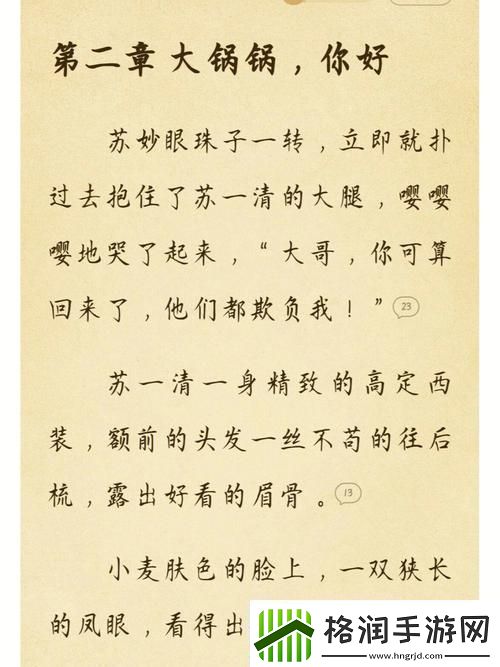 第二章 大锅锅，你好
苏妙眼珠子一转，立即就扑
过去抱住了苏一清的大腿，嘤嘤
嘤地哭了起来，“大哥，你可算
回来了，他们都欺负我！” 23
苏一清一身精致的高定西
装，额前的头发一丝不苟的往后
梳，露出好看的眉骨。 13
小麦肤色的脸上，一双狭长
的凤眼，看得出
格润手游网
www.hngrjd.com